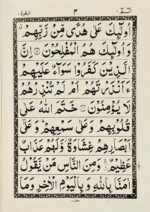 البقرة ٢
٣
الٓمّٓ ١
اُولٰٓئِكَ عَلٰى هُدًى مِّنْ رَّبِّهِمْ
وَاُولٰٓئِكَ هُمُ الْمُفْلِحُوْنَ ۝ اِنَّ
الَّذِيْنَ كَفَرُوْا سَوَآءٌ عَلَيْهِمْ
ءَاَنْذَرْتَهُمْ اَمْ لَمْ تُنْذِرْهُمْ
لَا يُؤْمِنُوْنَ ۝ خَتَمَ اللّٰهُ عَلٰى
قُلُوْبِهِمْ وَعَلٰى سَمْعِهِمْ وَعَلٰٓى
اَبْصَارِهِمْ غِشَاوَةٌ وَّلَهُمْ عَذَابٌ
عَظِيْمٌ ۝ وَمِنَ النَّاسِ مَنْ يَّقُوْلُ
اٰمَنَّا بِاللّٰهِ وَبِالْيَوْمِ الْاٰخِرِ وَمَا